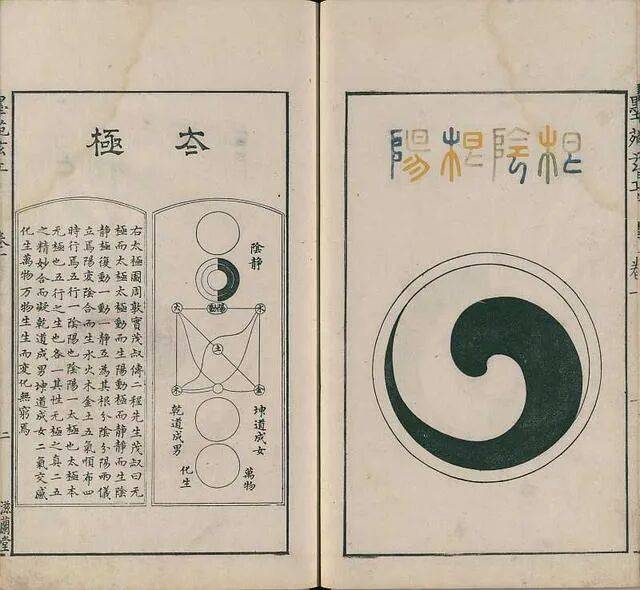 根陰根陽
太極
陰靜
陽動
火
水
土
木
金
坤道成女
乾道成男
萬物
化生
右太極圖周敦實茂叔傳二程先生茂叔曰无
極而太極太極動而生陽動極而靜靜而生陰
靜極復動一動一靜互為其根分陰分陽兩儀
立焉陽變陰合而生水火木金土五氣順布四
時行焉五行一陰陽也陰陽一太極也太極本
无極也五行之生也各一其性无極之真二五
之精妙合而凝乾道成男坤道成女二氣交感
化生萬物万物生生而變化無窮焉
卷一
二
滋蘭堂